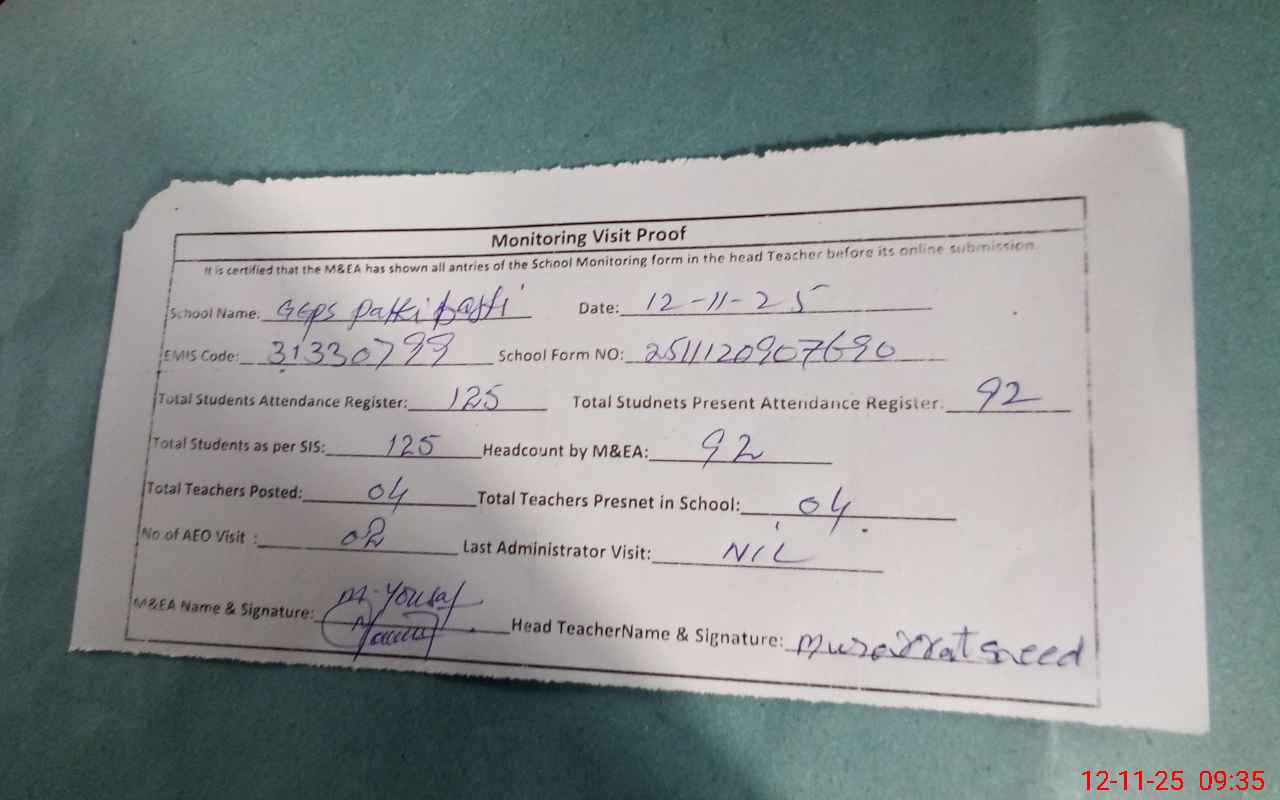 Monitoring Visit Proof
It is certified that the M&EA has shown all antries of the School Monitoring form in the head Teacher before its online submission.
School Name: GGPS Patti basti Date: 12-11-25
EMIS Code: 31330799 School Form NO: 2511120907690
Total Students Attendance Register: 125 Total Studnets Present Attendance Register: 92
Total Students as per SIS: 125 Headcount by M&EA: 92
Total Teachers Posted: 04 Total Teachers Presnet in School: 04
No of AEO Visit : 02 Last Administrator Visit: NIL
M&EA Name & Signature: M. Yousaf Head TeacherName & Signature: Musarrat Saeed
12-11-25 09:35